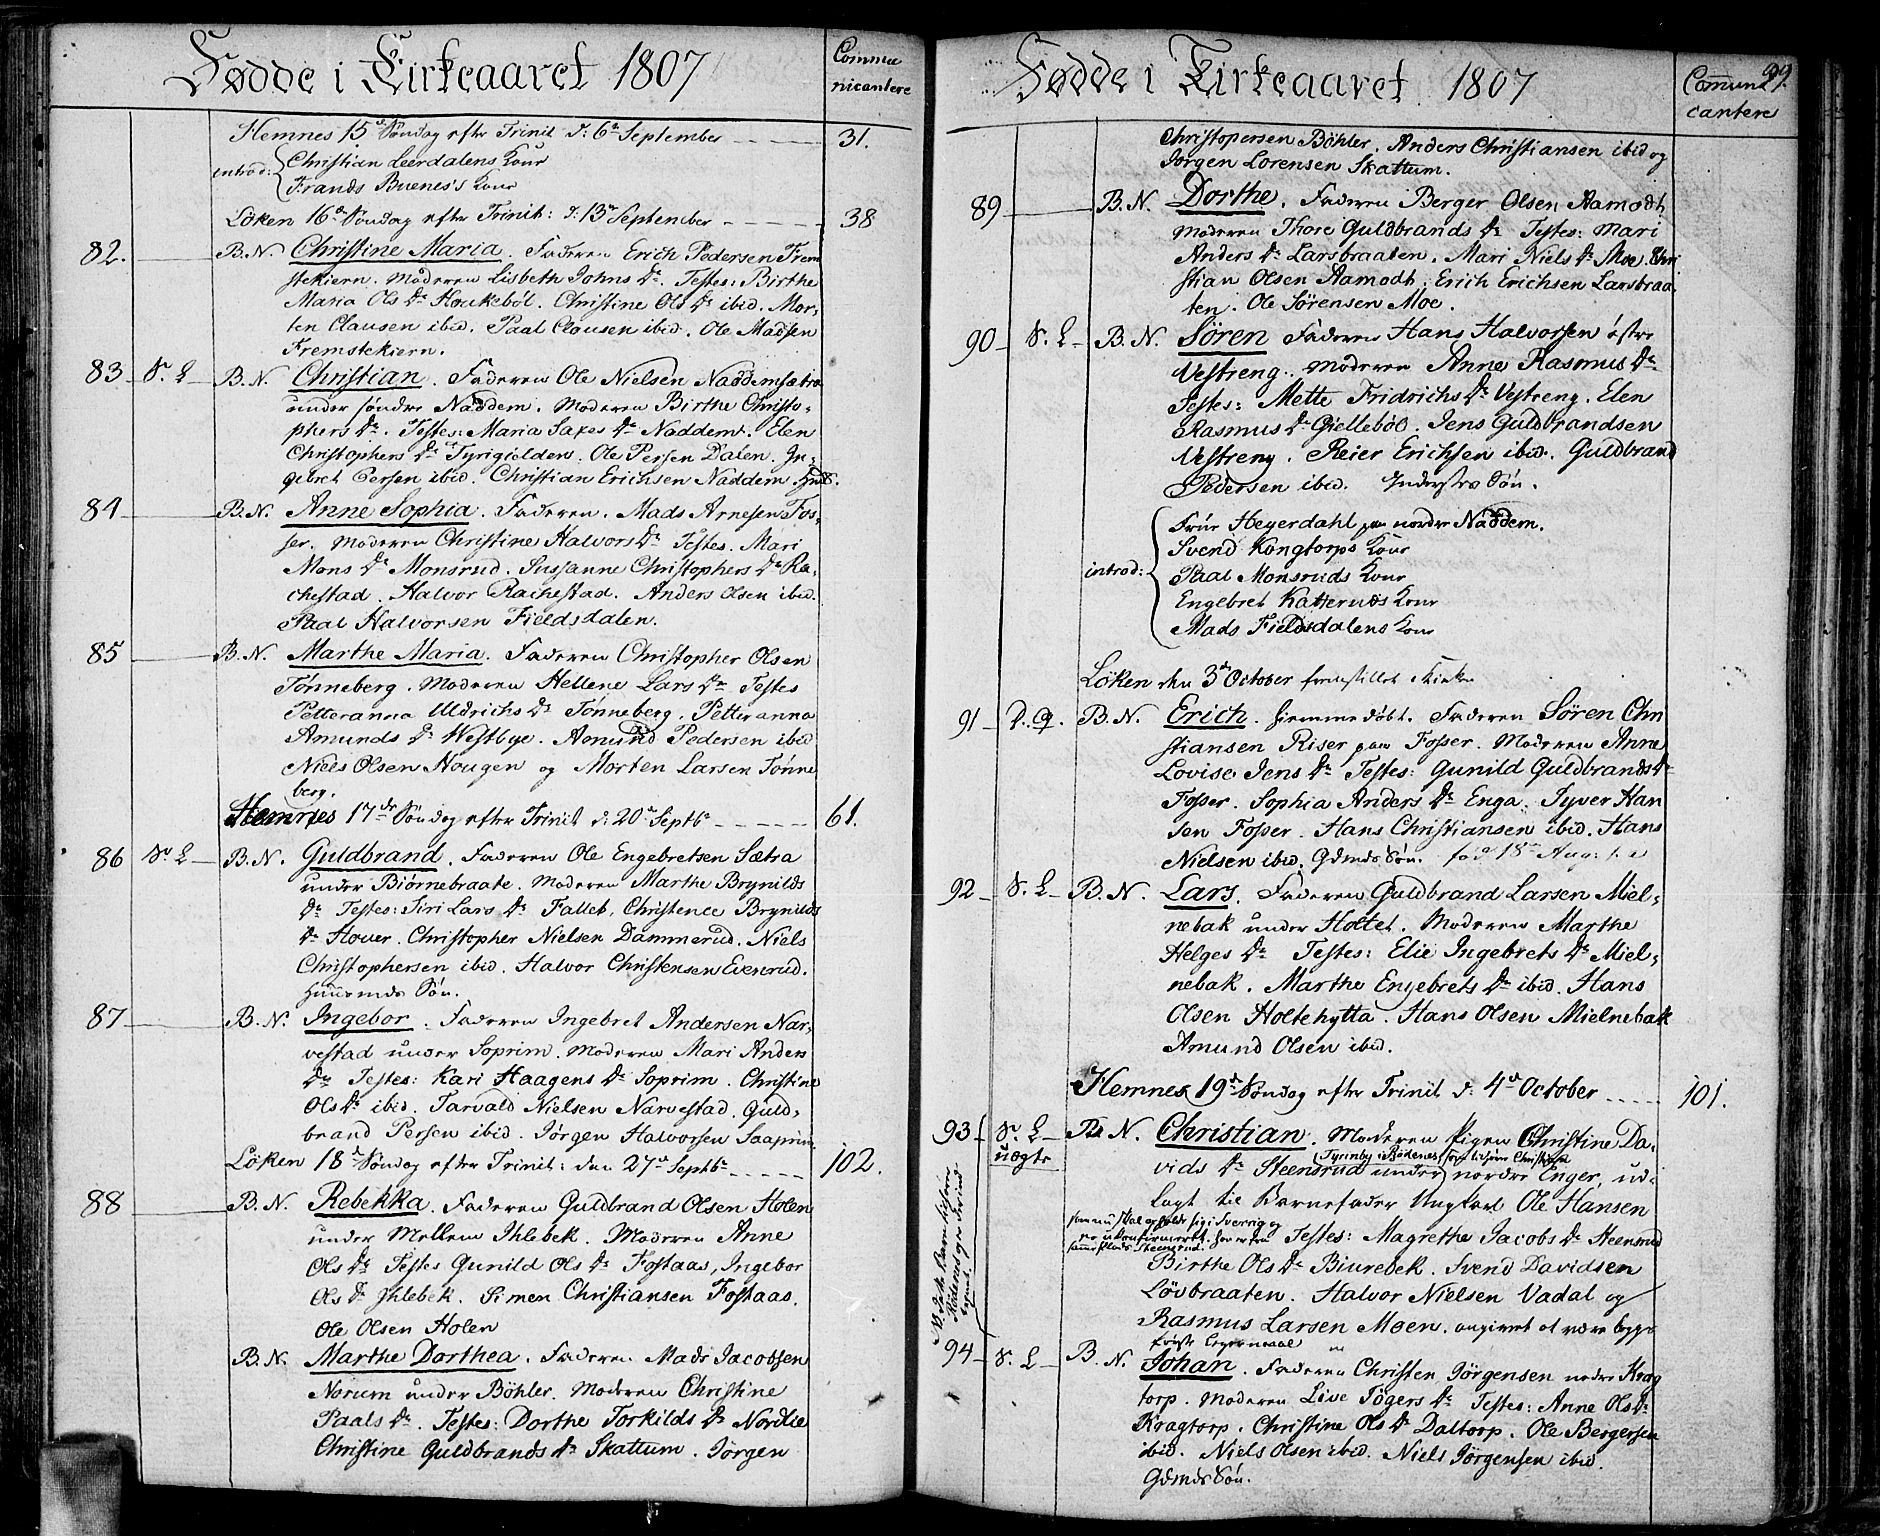 Fødde i Kirkeaaret 1807
Commu
nicantere
Hemnes 15de Søndag efter Trinit d: 6te September 31.
introd: Christian Leerdalens Kone
Frands Buenes's Kone
Løken 16de Søndag efter Trinit: d: 13de September 38
82. B.N. Christine Maria. Faderen Erich Pedersen Frem
stekiern. Moderen Lisbeth Johns Dr. Testes: Birthe
Maria Ols Dr Houkebøl. Christine Ols Dr ibid. Mor-
ten Clausen ibid. Paal Clausen ibid. Ole Madsen
Fremstekiern.
83 S. L B.N. Christian. Faderen Ole Nielsen Naddemsætra
under søndre Naddem. Moderen Birthe Christo-
phers Dr. Testes: Maria Saxes Dr Naddem. Elen
Christophers Dr Tyrigielden. Ole Persen Dalen. In-
gebret Persen ibid. Christian Erichsen Naddem
84 B.N. Anne Sophia. Faderen. Mads Arnesen Fos-
ser. Moderen Christine Halvors Dr Testes. Mari
Mons Dr Monsrud. Susanne Christophers Dr Ra-
chestad. Halvor Rachestad. Anders Olsen ibid.
Paal Halvorsen Fieldsdalen.
85 B.N. Marthe Maria. Faderen Christopher Olsen
Tønneberg. Moderen Hellene Lars Dr Testes
Petteranna Uldrichs Dr Tønneberg. Petteranna
Amunds Dr Westbye. Amund Pedersen ibid
Niels Olsen Hougen og Morten Larsen Tønne
berg.
Hemnes 17de Søndag efter Trinit d: 20de Septbr 61.
86 S. L B.N. Guldbrand. Faderen Ole Engebretsen Sætra
under Biørnebraate. Moderen Marthe Brynilds
Dr Testes: Siri Lars Dr Fallet, Christence Brynilds
Dr Hover. Christopher Nielsen Dammerud. Niels
Christophersen ibid. Halvor Christensen Evenrud.
Huusmds Søn.
87 B.N. Ingebor. Faderen Ingebret Andersen Nar-
vestad under Soprim. Moderen Mari Anders
Dr Testes: Kari Haagens Dr Soprim. Christine
Ols Dr ibid. Tarvald Nielsen Narvestad. Guld-
brand Persen ibid. Jørgen Halvorsen Saaprim
Løken 18de Søndag efter Trinit: den 27de Septbr 102.
88 B.N. Rebekka. Faderen Guldbrand Olsen Holen
under Mellem Ihlebek. Moderen Anne
Ols Dr Testes Gunild Ols Dr Fostaas, Ingebor
Ols Dr Ihlebek. Simen Christiansen Fostaas.
Ole Olsen Holen
B.N. Marthe Dorthea. Faderen Mads Jacobsen
Norum under Bøhler. Moderen Christine
Paals Dr. Testes: Dorthe Torkilds Dr Nordlie
Christine Guldbrands Dr Skattum. Jørgen
Fødde i Kirkeaaret 1807
Communi
cantere
99.
Christopersen Bøhler. Anders Christiansen ibid og
Jørgen Lorensen Skattum.
89 B.N. Dorthe. Faderen Berger Olsen Aamodt
Moderen Thore Guldbrands Dr Testes: Mari
Anders Dr Larsbraaten. Mari Niels Dr Moe. Chri
stian Olsen Aamodt. Erich Erichsen Larsbraa-
ten. Ole Sørensen Moe.
90 S. L B.N. Søren Faderen Hans Halvorsen østre
Vestreng. Moderen Anne Rasmus Dr
Testes: Mette Fridrichs Dr Vestreng. Elen
Rasmus Dr Giellebøl. Jens Guldbrandsen
Vestreng. Reier Erichsen ibid. Guldbrand
Pedersen ibid. Inderstes Søn.
introd: Frue Heyerdahl paa nordre Naddem.
Svend Kongtorps Kone
Paal Monsruds Kone
Engebret Katteruds Kone
Mads Fieldsdalens Kone
Løken den 3de October fremstillet i Kirken
91 B.N. Erich. hiemmedøbt. Faderen Søren Chri
stiansen Riser paa Fosser. Moderen Anne
Lovise Jens Dr Testes: Gunild Guldbrands Dr
Fosser. Sophia Anders Dr Enga. Iyver Han
sen Fosser. Hans Christiansen ibid. Hans
Nielsen ibid. Gdmds Søn. fød 18de Aug:
92 S. L B.N. Lars. Faderen Guldbrand Larsen Miel-
nebak under Holtet. Moderen Marthe
Helges Dr Testes: Elie Ingebrets Dr Miel-
nebak. Marthe Engebrets Dr ibid. Hans
Olsen Holtehytta. Hans Olsen Mielnebak
Amund Olsen ibid.
Hemnes 19de Søndag efter Trinit d: 4de October 101.
93 S. L B.N. Christian. Moderen Pigen Christine Da-
uægte
vids Dr Steensrud under nordre Enger, ud-
lagt til Barnefader Ungkarl Ole Hansen
som nu skal opholde sig i Sverrig og
Testes: Magrethe Jacobs Dr Steensrud
Birthe Ols Dr Biurebek. Svend Davidsen
Løvbraaten. Halvor Nielsen Vadal og
Rasmus Larsen Moen. angivet at være begges
første Leyermaal
94 S. L B.N. Johan. Faderen Christen Jørgensen nedre Krag
torp. Moderen Live Tøgers Dr Testes: Anne Ols Dr
Kragtorp. Christine Ols Dr Daltorp. Ole Bergersen
ibid. Niels Olsen ibid. Niels Jørgensen ibid.
Gdmds Søn.